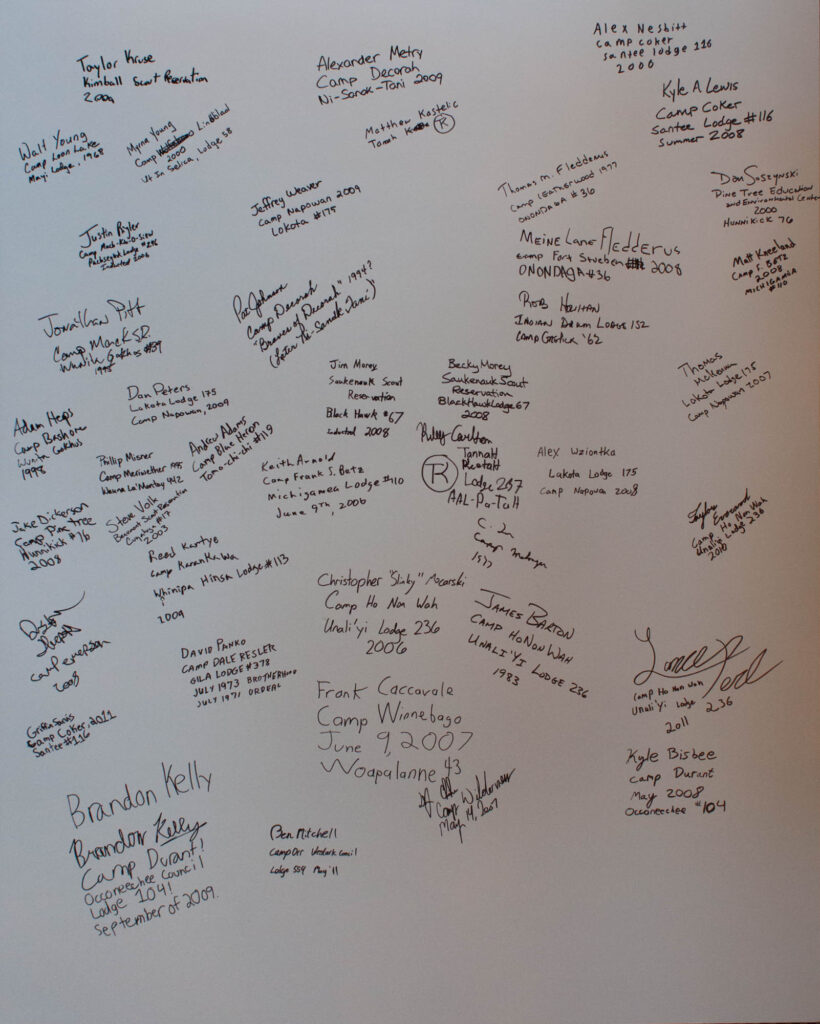 Taylor Kruse
Kimball Scout Reservation
2009
Alexander Metry
Camp Decorah
Ni-Sanak-Tani 2009
Alex Nesbitt
camp coker
santee lodge 116
2000
Kyle A Lewis
Camp Coker
Santee Lodge #116
Summer 2008
Walt Young
Camp Loon Lake
Mayi Lodge, 1968
Myrna Young
Camp Lindblad
2000
Ut In Selica, Lodge 58
Matthew Kostelic
Tanah
R
Jeffrey Weaver
Camp Napowan 2009
Lakota #175
Thomas M. Fledderus
Camp Leatherwood 1977
ONONDAGA #36
Don
Pine Tree Education
and Environmental Center
2000
HUNNIKICK 76
Justin
Camp
Lodge
Inducted 2006
MEINE Lane Fledderus
Camp Fort Steuben 2008
ONONDAGA #36
Matt Kneeland
Camp F. BETZ
2008
MICHIGAMEA
#110
Jonathan Pitt
Camp Mack SR.
Wunita Gokhos #39
1995
Pat Johnson
Camp Decorah 1994?
"Braves of Decorah"
(Later Ni-Sanak Tani)
Rob
Indian Drum Lodge 152
Camp Greilick '62
Adam Heps
Camp Bashore
Wunita Gokhos
1998
Dan Peters
Lakota Lodge 175
Camp Napowan, 2009
Jim Morey
Saukenauk Scout
Reservation
Black Hawk #67
inducted 2008
Becky Morey
Saukenauk Scout
Reservation
BlackHawk Lodge 67
2008
Thomas
McKeown
Lakota Lodge 175
Camp Napowan 2007
Phillip Misner
Camp Meriwether 1995
Wauna La'Montay 442
Andrew Adams
Camp Blue Heron
Tomo-chi-chi #119
Keith Arnold
Camp Frank S. Betz
Michigamea Lodge #110
June 9th, 2006
Riley Carlton
Tannah
R
Lodge 237
AAL-Pa-Tah
Alex Wziontka
Lakota Lodge 175
Camp Napowan 2008
Jake Dickerson
Camp Pine tree
Hunnikick #76
2008
Steve Volk
Beaumont Scout Reservation
#17
2003
Reed
Camp Karankawa
Whinipa Hinsa Lodge #113
2009
1977
Taylor
Camp Ho Non Wah
Unali'yi Lodge 236
2010
Christopher "Slinky" Mocarski
Camp Ho Non Wah
Unali'yi Lodge 236
2006
James Barton
Camp HoNonWah
Unali'yi Lodge 236
1983
camp emerson
2008
David Panko
Camp Dale Resler
Gila Lodge #378
July 1973 Brotherhood
July 1971 Ordeal
Camp Ho Non Wah
Unali'yi Lodge 236
2011
Griffin
Camp Coker, 2011
Santee #116
Frank Caccavale
Camp Winnebago
June 9, 2007
Woapalanne 43
Kyle Bisbee
Camp Durant
May 2008
Occoneechee #104
Camp Wilderness
May 19, 2007
Brandon Kelly
Brandon Kelly
Camp Durant!
Occoneechee Council
Lodge 104!
September of 2009.
Ben Mitchell
Camp Orr Westark Council
Lodge 559 May '11